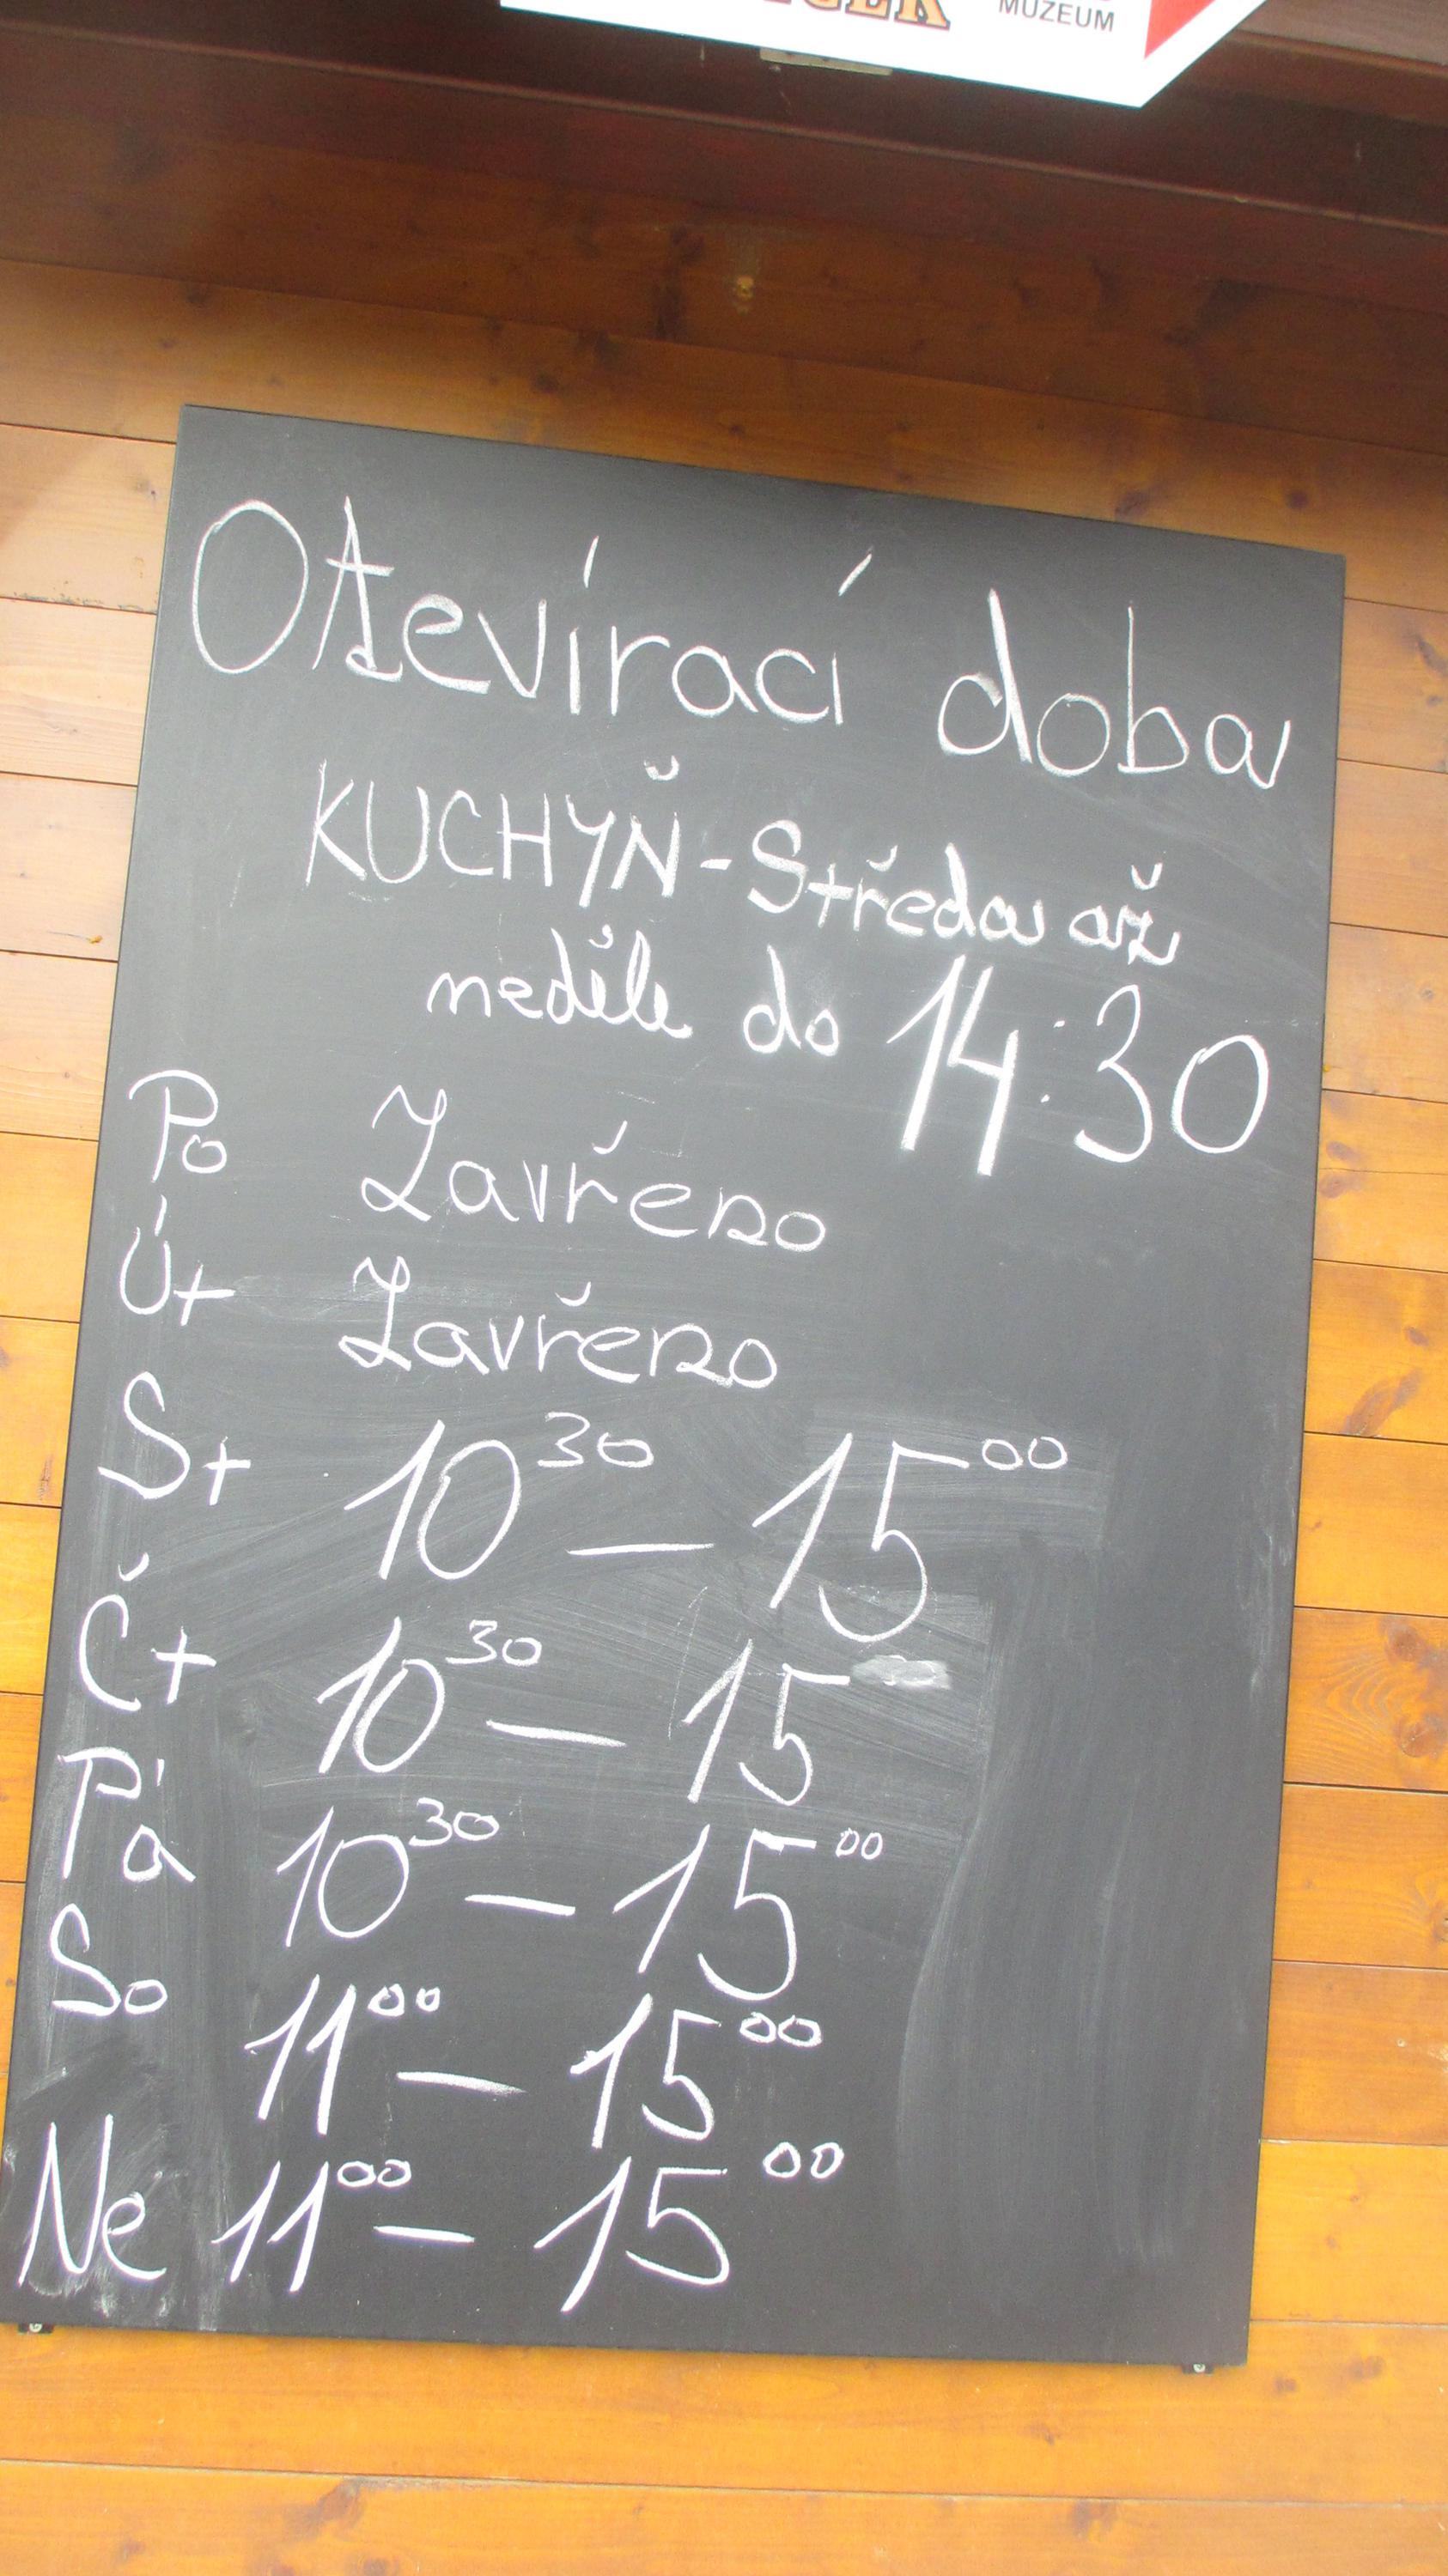 MUZEUM
Otevírací doba
KUCHYŇ - Středa až
neděle do 14:30
Po Zavřeno
Út Zavřeno
St 10³⁰ — 15⁰⁰
Čt 10³⁰ — 15
Pá 10³⁰ — 15⁰⁰
So 11⁰⁰ — 15⁰⁰
Ne 11⁰⁰ — 15⁰⁰